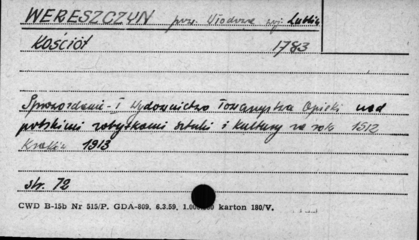 WERESZCZYN pow. Włodawa woj. Lublin
Kościół 1783
Sprawozdanie i Wydawnictwo Towarzystwa Opieki nad
polskimi zabytkami sztuki i kultury za rok 1912
Kraków 1913
str. 72
CWD B-15b Nr 515/P. GDA-809. 6.3.59. karton 180/V.